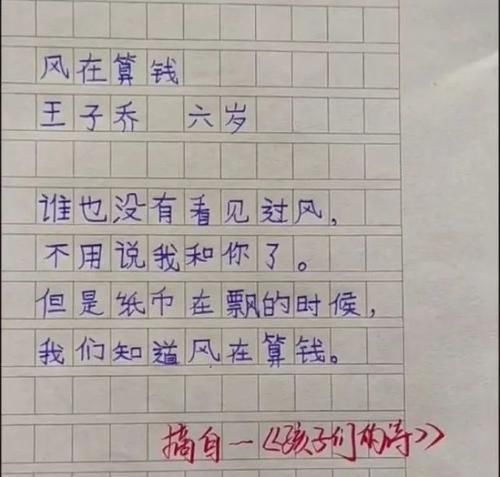 风在算钱
王子乔 六岁
谁也没有看见过风，
不用说我和你了。
但是纸币在飘的时候，
我们知道风在算钱。
摘自一《孩子们的诗》